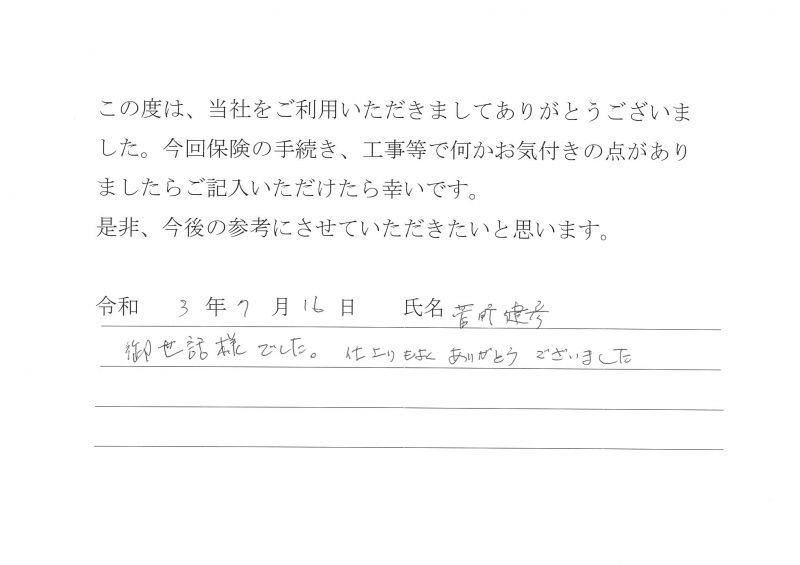 この度は、当社をご利用いただきましてありがとうございま
した。今回保険の手続き、工事等で何かお気付きの点があり
ましたらご記入いただけたら幸いです。
是非、今後の参考にさせていただきたいと思います。
令和 3 年 7 月 16 日 氏名
御世話様でした。仕上りもよくありがとうございました